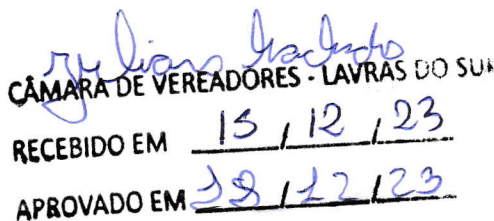 Juliano Machado
CÂMARA DE VEREADORES - LAVRAS DO SUL
RECEBIDO EM 15 / 12 / 23
APROVADO EM 18 / 12 / 23